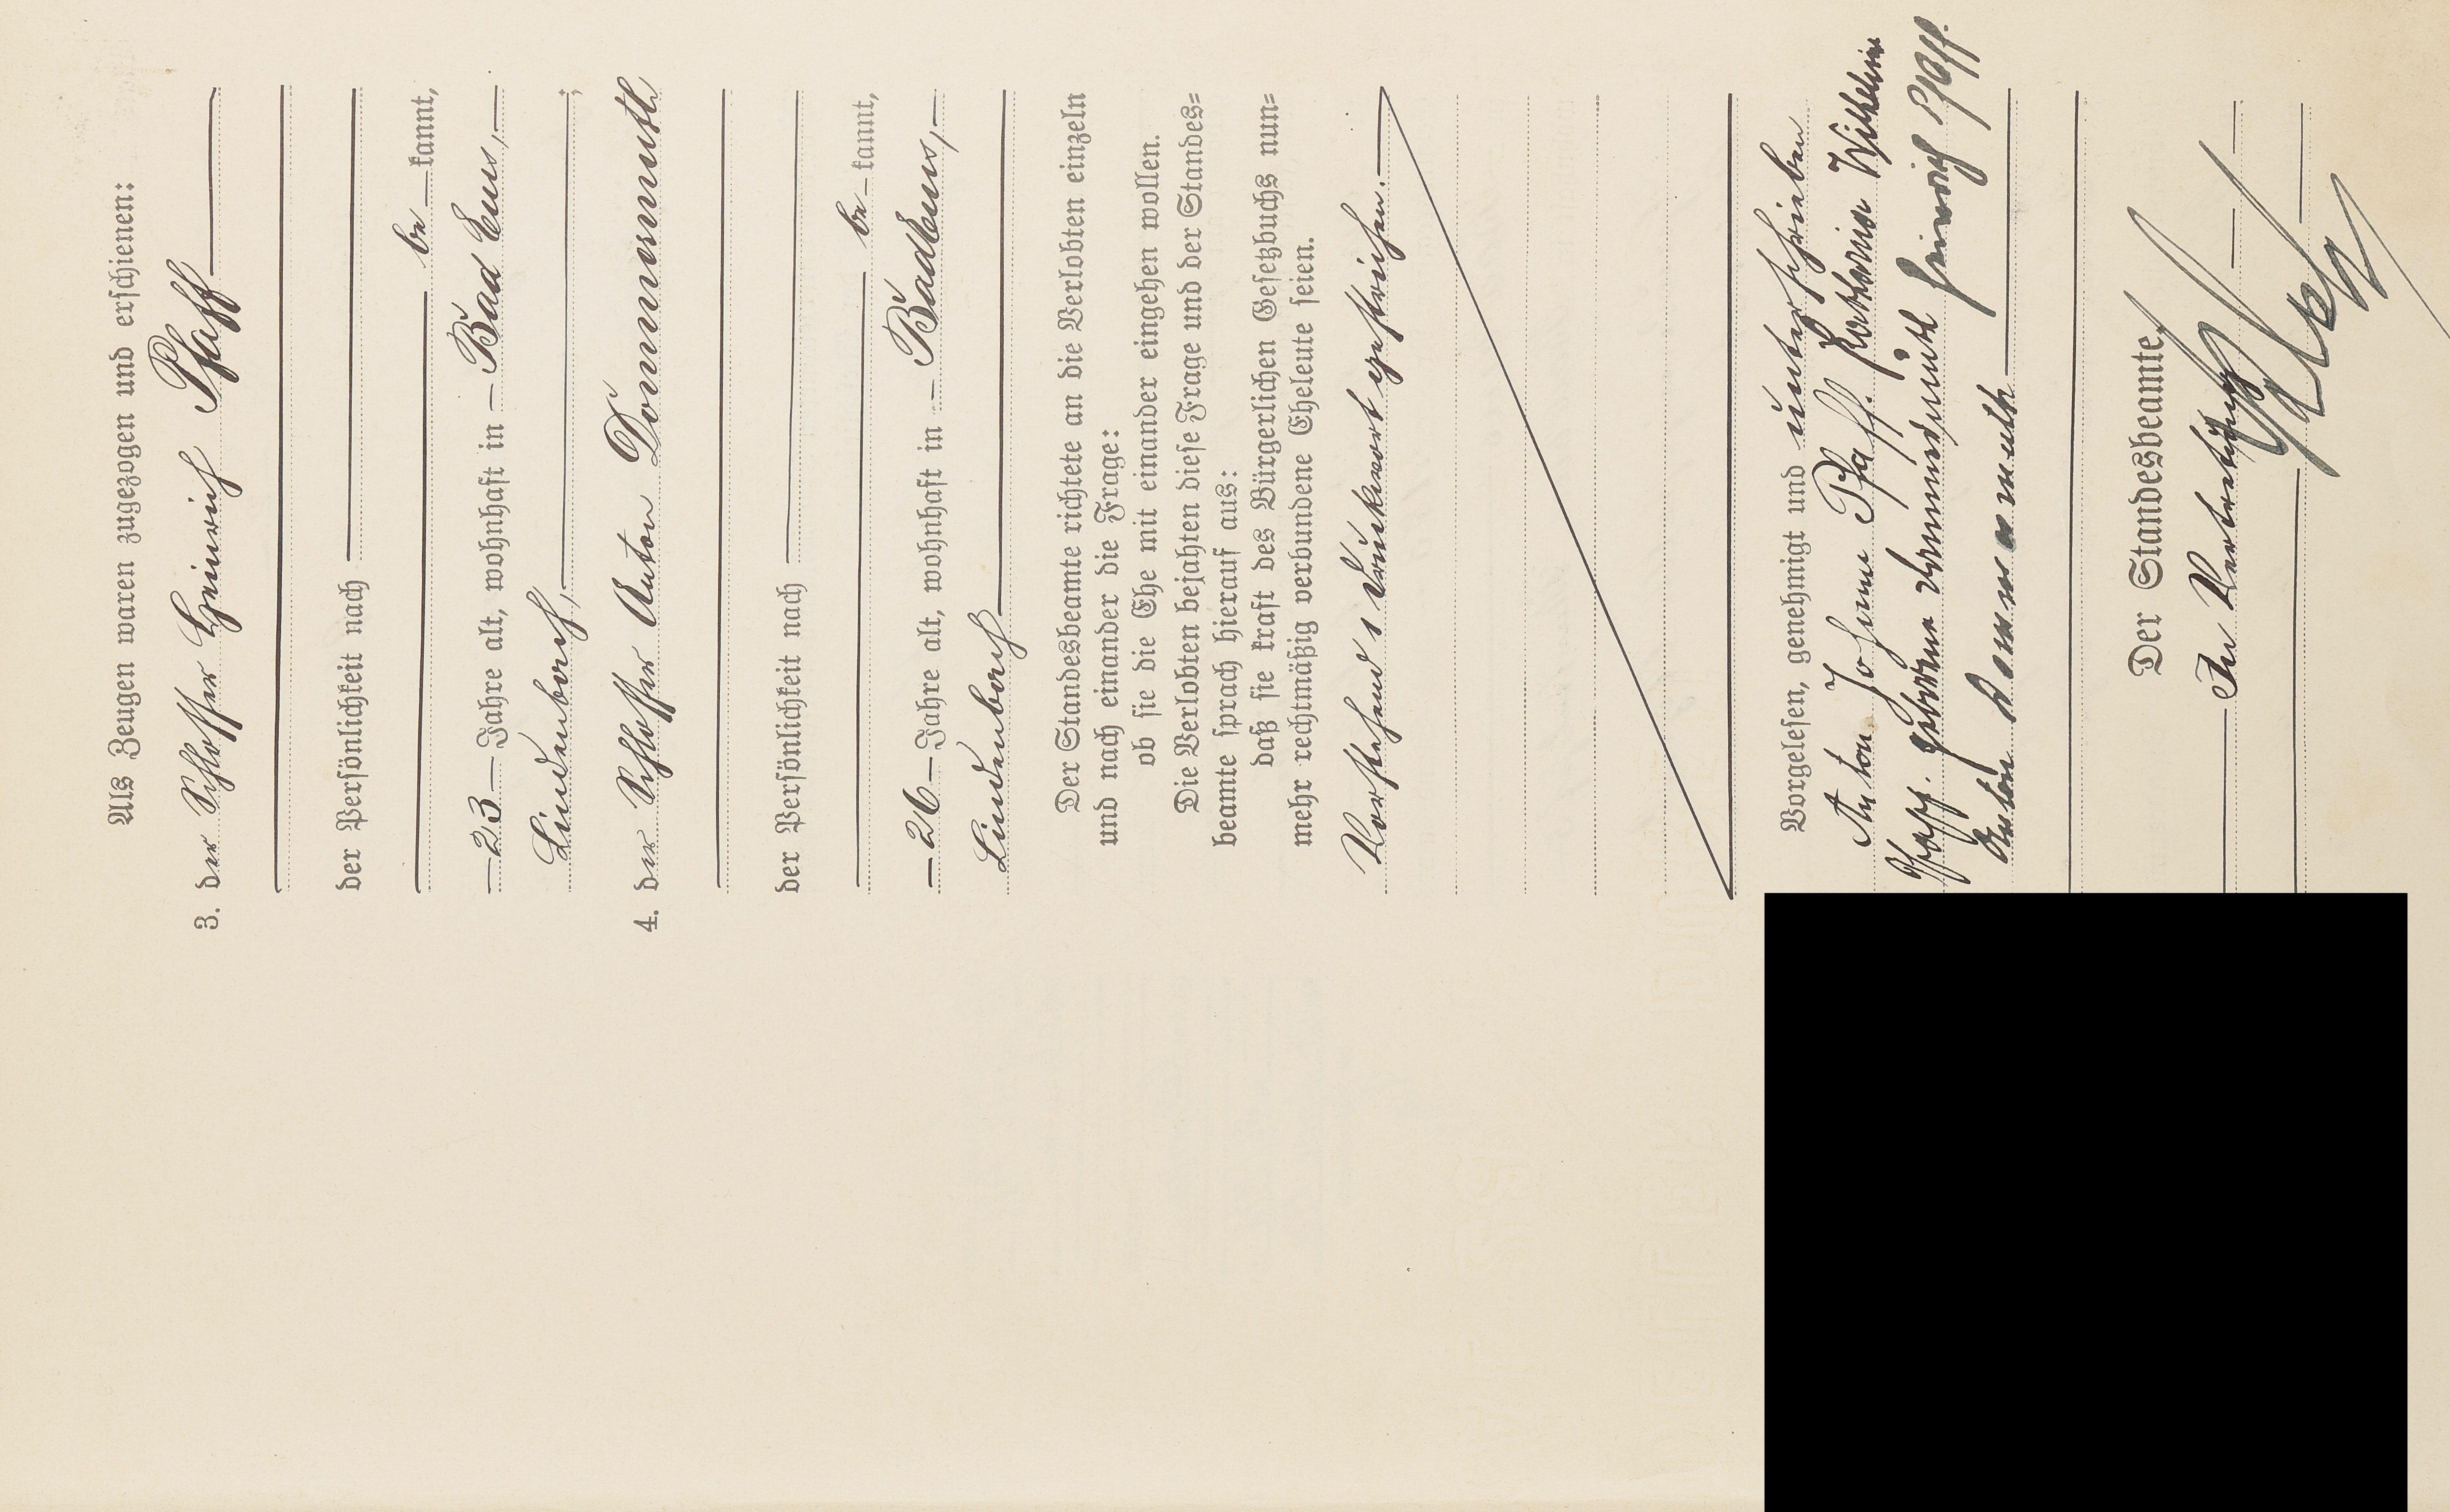 Als Zeugen waren zugezogen und erschienen:
3. der Schlosser Heinrich Pfaff
der Persönlichkeit nach
be kannt,
23 Jahre alt, wohnhaft in Bad Ems,
Lindenbach,
;
4. der Schlosser Anton Donnermuth
der Persönlichkeit nach
be kannt,
26 Jahre alt, wohnhaft in Bad Ems,
Lindenbach
Der Standesbeamte richtete an die Verlobten einzeln
und nach einander die Frage:
ob sie die Ehe mit einander eingehen wollen.
Die Verlobten bejahten diese Frage und der Standes=
beamte sprach hierauf aus:
daß sie kraft des Bürgerlichen Gesetzbuchs nun=
mehr rechtmäßig verbundene Eheleute seien.
Vorstehend 1 Druckwort gestrichen.
Vorgelesen, genehmigt und unterschrieben
Anton Johann Pfaff. Katharina Wilhelmine
Pfaff. geborene Donnermuth Heinrich Pfaff.
Anton Donnermuth
Der Standesbeamte,
In Vertretung